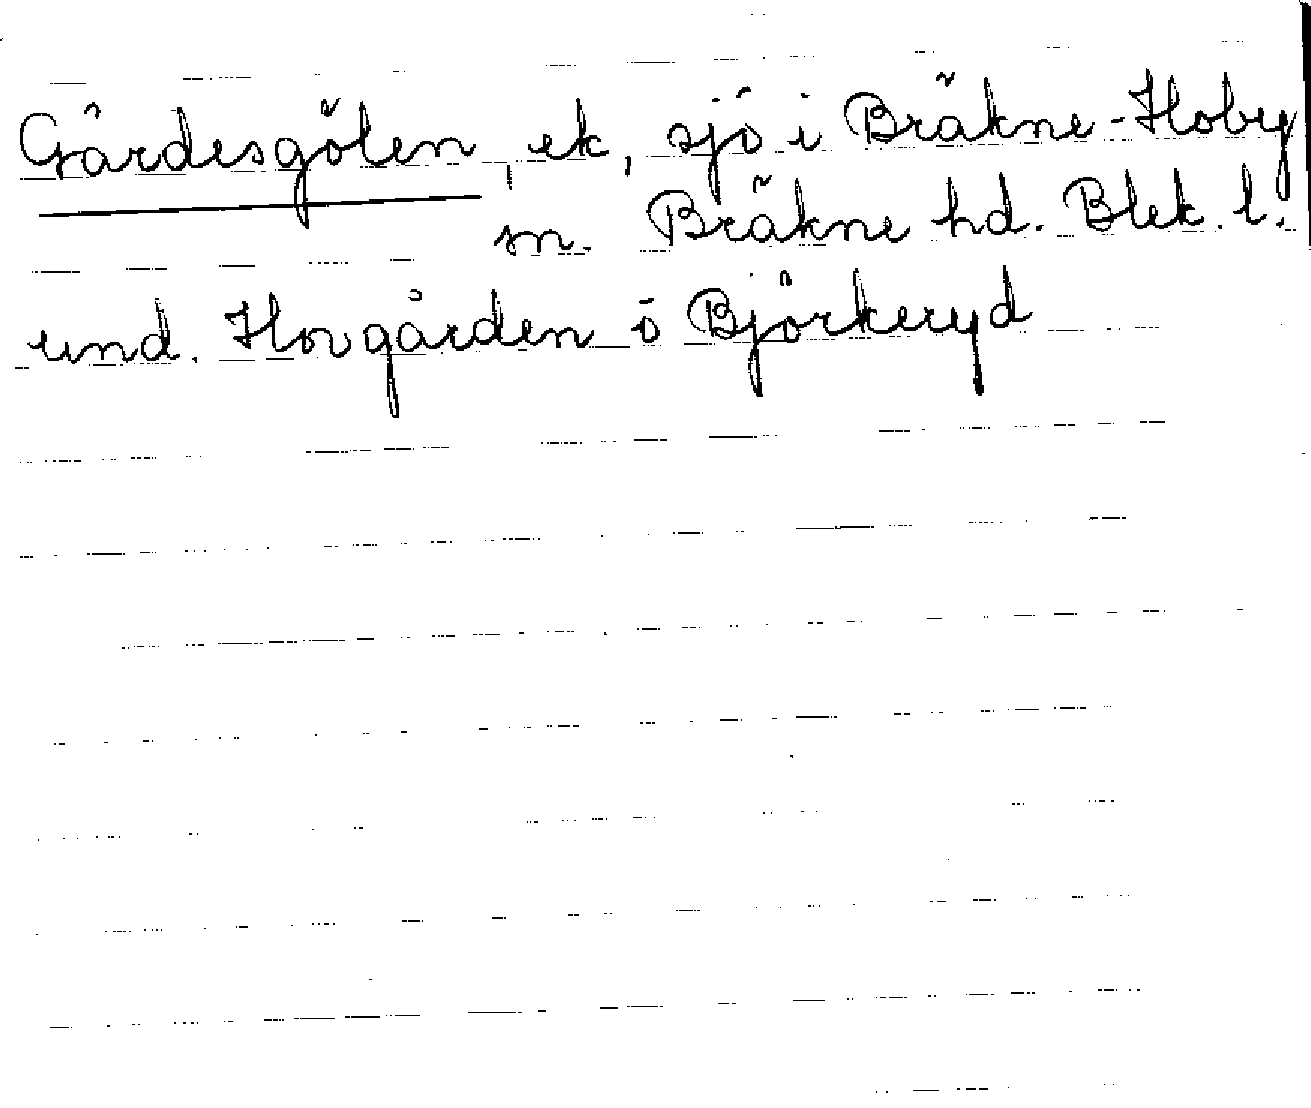 Gärdesgölen, ek, sjö i Bräkne-Hoby
sn. Bräkne hd. Blek. l.
und. Hovgården ö Björkeryd